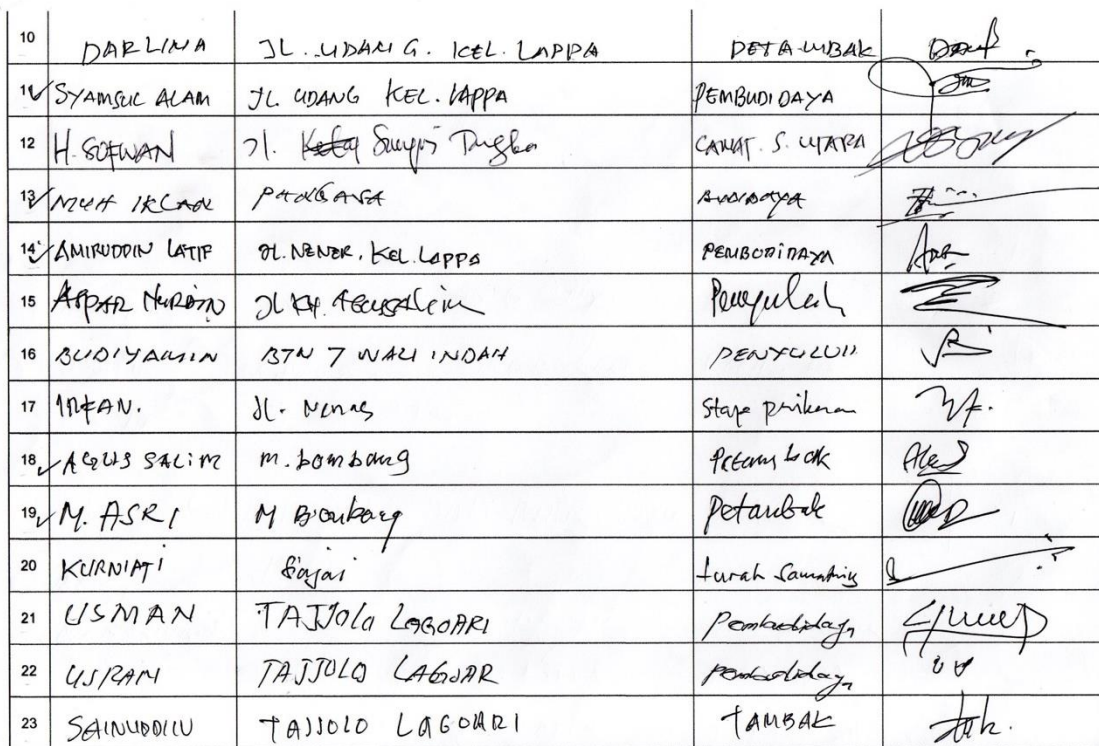 10 DARLINA JL. UDANG. KEL. LAPPA PETAMBAK
11 SYAMSUL ALAM JL. UDANG KEL. LAPPA PEMBUDIDAYA
12 H. SOFWAN Jl. Sungai Tangka CAMAT. S. UTARA
13 MUH IKLAN BUDIDAYA
14 AMIRUDDIN LATIF JL. NENER. KEL. LAPPA PEMBUDIDAYA
15 ASPAR NURDIN JL KH. AGUSSALIM
16 BUDIYAMIN BTN 7 WALI INDAH PENYULUH
17 IRFAN. Jl. Nenas
18 AGUS SALIM M. bombang Petambak
19 M. ASRI M Petambak
20 KURNIATI Sinjai
21 USMAN TAJJOLO LAGOARI Pembudidaya
22 USRAN TAJJOLO LAGOAR Pembudidaya
23 SAINUDDIN TAJJOLO LAGOARI TAMBAK